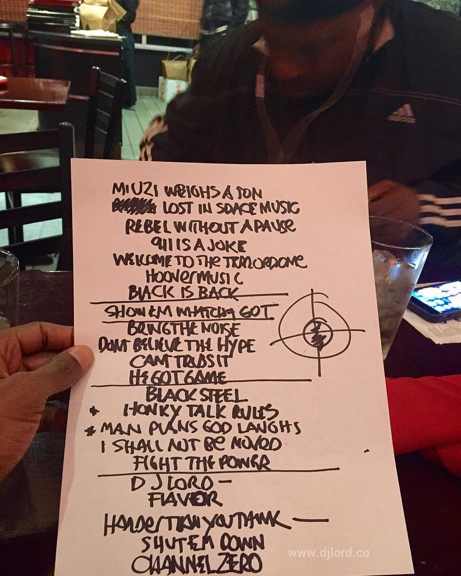 MIUZI WEIGHS A TON
LOST IN SPACE MUSIC
REBEL WITHOUT A PAUSE
911 IS A JOKE
WELCOME TO THE TERRORDOME
HOOVER MUSIC
BLACK IS BACK
SHOW EM WHATCHA GOT
BRING THE NOISE
DONT BELIEVE THE HYPE
CANT TRUSS IT
HE GOT GAME
BLACK STEEL
* HONKY TALK RULES
* MAN PLANS GOD LAUGHS
I SHALL NOT BE MOVED
FIGHT THE POWER
DJ LORD —
FLAVOR
HARDER THAN YOU THINK —
SHUT EM DOWN
CHANNEL ZERO
www.djlord.co
adidas